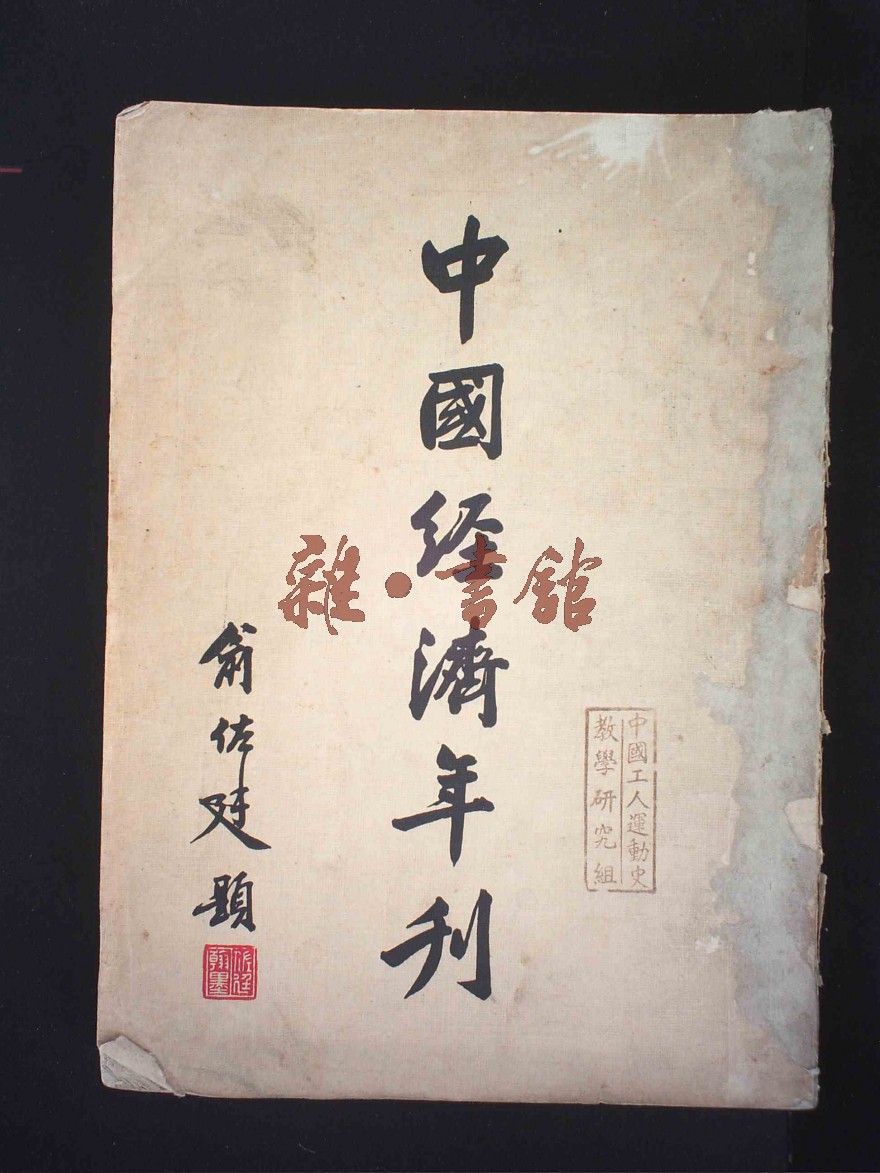 中國經濟年刊
俞佐廷題
佐廷
翰墨
中國工人運動史
教學研究組
雜·書館